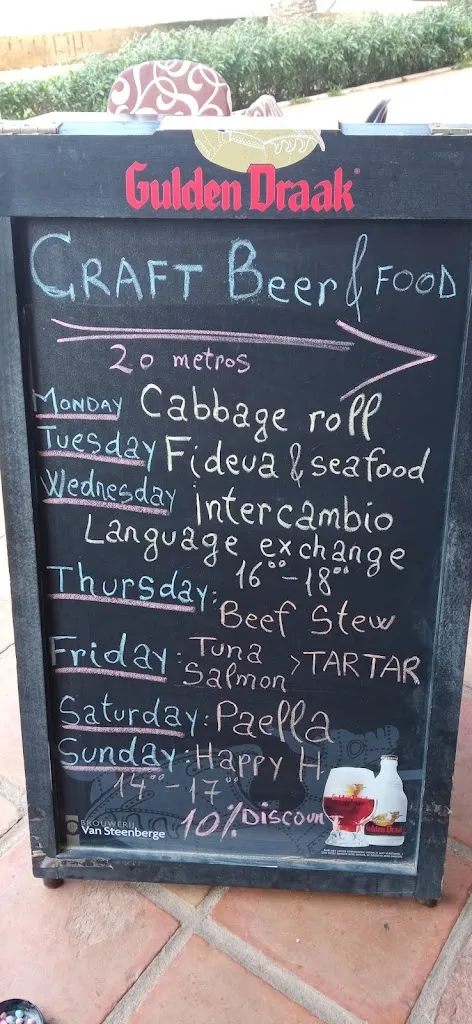 Gulden Draak
CRAFT Beer & FOOD
20 metros
MONDAY Cabbage roll
Tuesday Fideua & seafood
Wednesday Intercambio
Language exchange
16°°-18°°
Thursday:
Beef Stew
Friday: Tuna
Salmon > TARTAR
Saturday: Paella
Sunday: Happy H
14°°-17°°
10% Discoun
BROUWERIJ
Van Steenberge
Gulden Draak